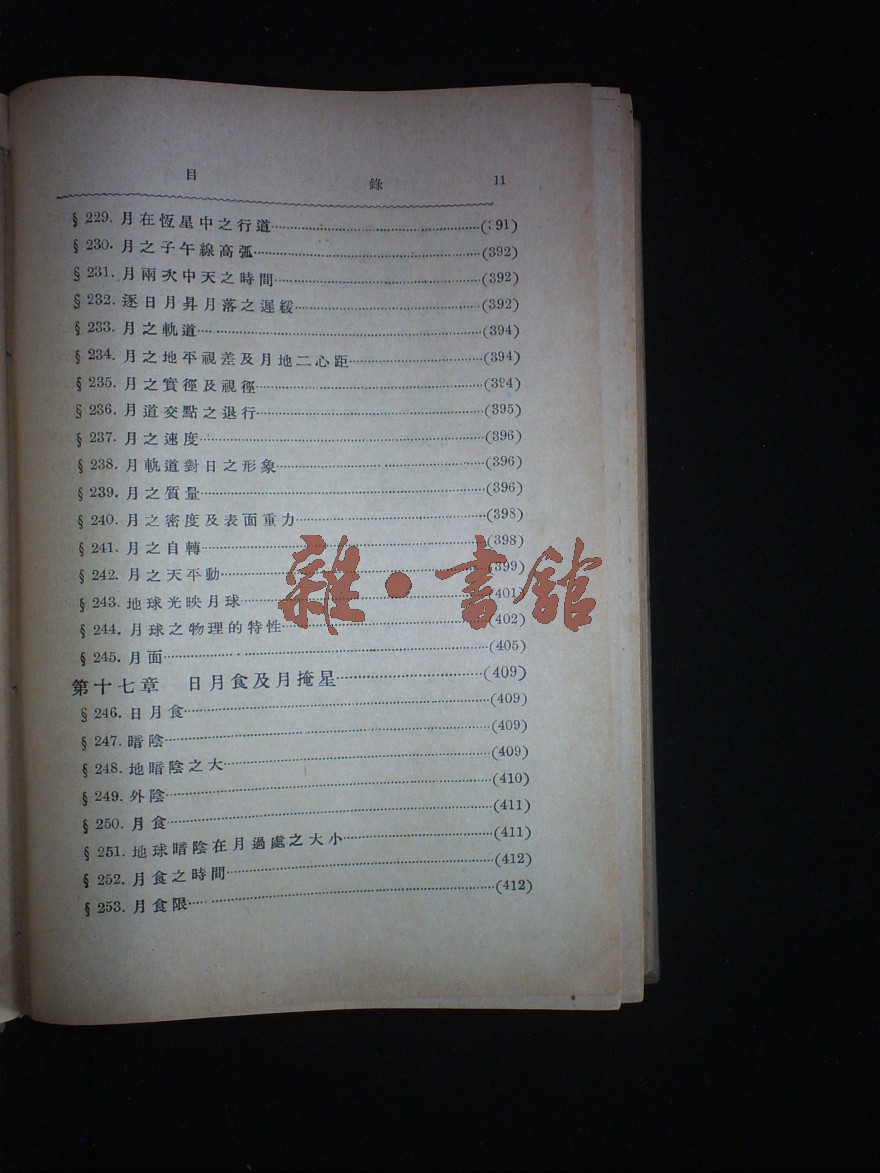 目 錄 11
§ 229. 月在恆星中之行道………(391)
§ 230. 月之子午線高弧………(392)
§ 231. 月兩次中天之時間………(392)
§ 232. 逐日月昇月落之遲緩………(392)
§ 233. 月之軌道………(394)
§ 234. 月之地平視差及月地二心距………(394)
§ 235. 月之實徑及視徑………(394)
§ 236. 月道交點之退行………(395)
§ 237. 月之速度………(396)
§ 238. 月軌道對日之形象………(396)
§ 239. 月之質量………(396)
§ 240. 月之密度及表面重力………(398)
§ 241. 月之自轉………(398)
§ 242. 月之天平動………(399)
§ 243. 地球光映月球………(401)
§ 244. 月球之物理的特性………(402)
§ 245. 月面………(405)
第十七章 日月食及月掩星………(409)
§ 246. 日月食………(409)
§ 247. 暗陰………(409)
§ 248. 地暗陰之大………(409)
§ 249. 外陰………(410)
§ 250. 月食………(411)
§ 251. 地球暗陰在月過處之大小………(411)
§ 252. 月食之時間………(412)
§ 253. 月食限………(412)
雜·書館